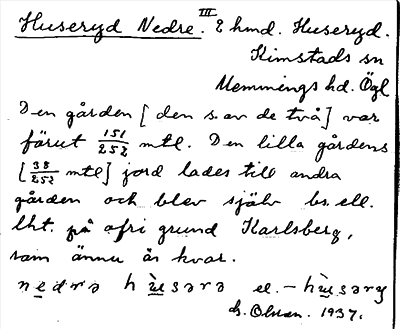 Huseryd Nedre. III 2 hmd. Huseryd.
Kimstads sn
Memmings hd. Ögl
Den gården [den s. av de två] var
förut 151/252 mtl. Den lilla gårdens
[38/252 mtl] jord lades till andra
gården och blev själv bs. ell.
lht. på ofri grund Karlsberg,
som ännu är kvar.
nedrə hùsərə el. – hùsəry
G. Olsson. 1937.